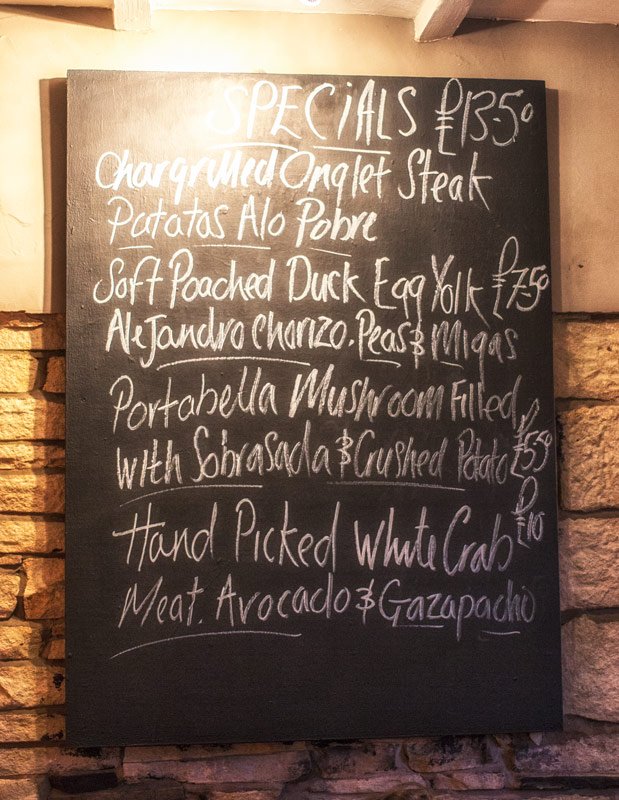 SPECIALS £13-50
Chargrilled Onglet Steak
Patatas Alo Pobre
Soft Poached Duck Egg Yolk £7-50
Alejandro Chorizo. Peas & Migas
Portabella Mushroom Filled
with Sobrasada & Crushed Potato £5-50
Hand Picked White Crab £10
Meat. Avocado & Gazapacho